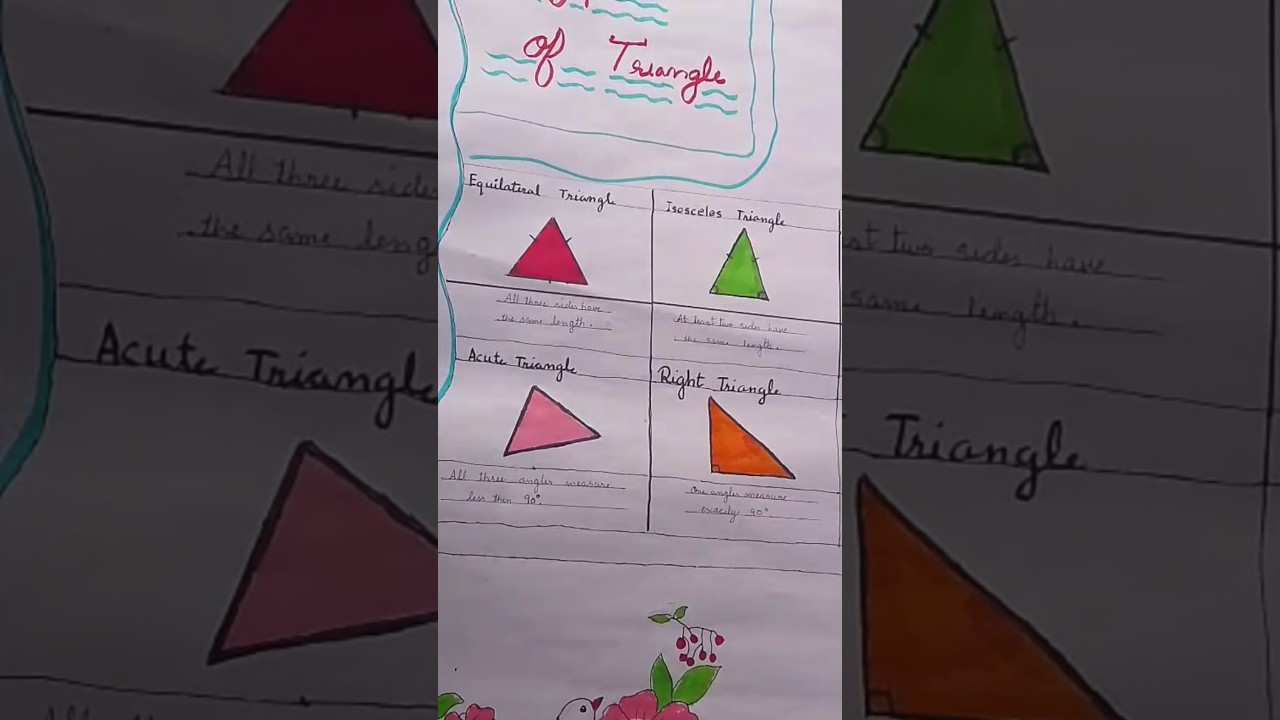 of Triangle
Equilateral Triangle
Isosceles Triangle
All three sides have
the same length.
At least two sides have
the same length.
Acute Triangle
Right Triangle
All three angles measure
less then 90°.
One angles measure
exactly 90°